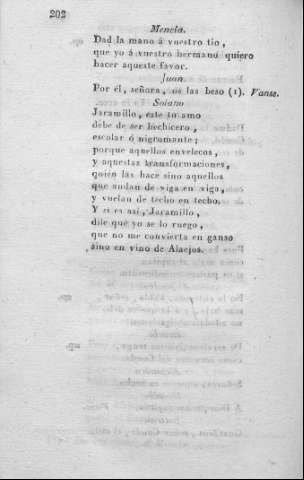 202
Mencía.
Dad la mano á vuestro tio,
que yo á vuestro hermano quiero
hacer aqueste favor.
Juan.
Por él, señora, os las beso (1). Vanse.
Solano
Jaramillo, este tu amo
debe de ser hechicero,
escolar ó nigromante;
porque aquellos embelecos,
y aquestas transformaciones,
quien las hace sino aquellos
que andan de viga en viga,
y vuelan de techo en techo.
Y si es así, Jaramillo,
dile que yo se lo ruego,
que no me convierta en ganso
sino en vino de Alaejos.